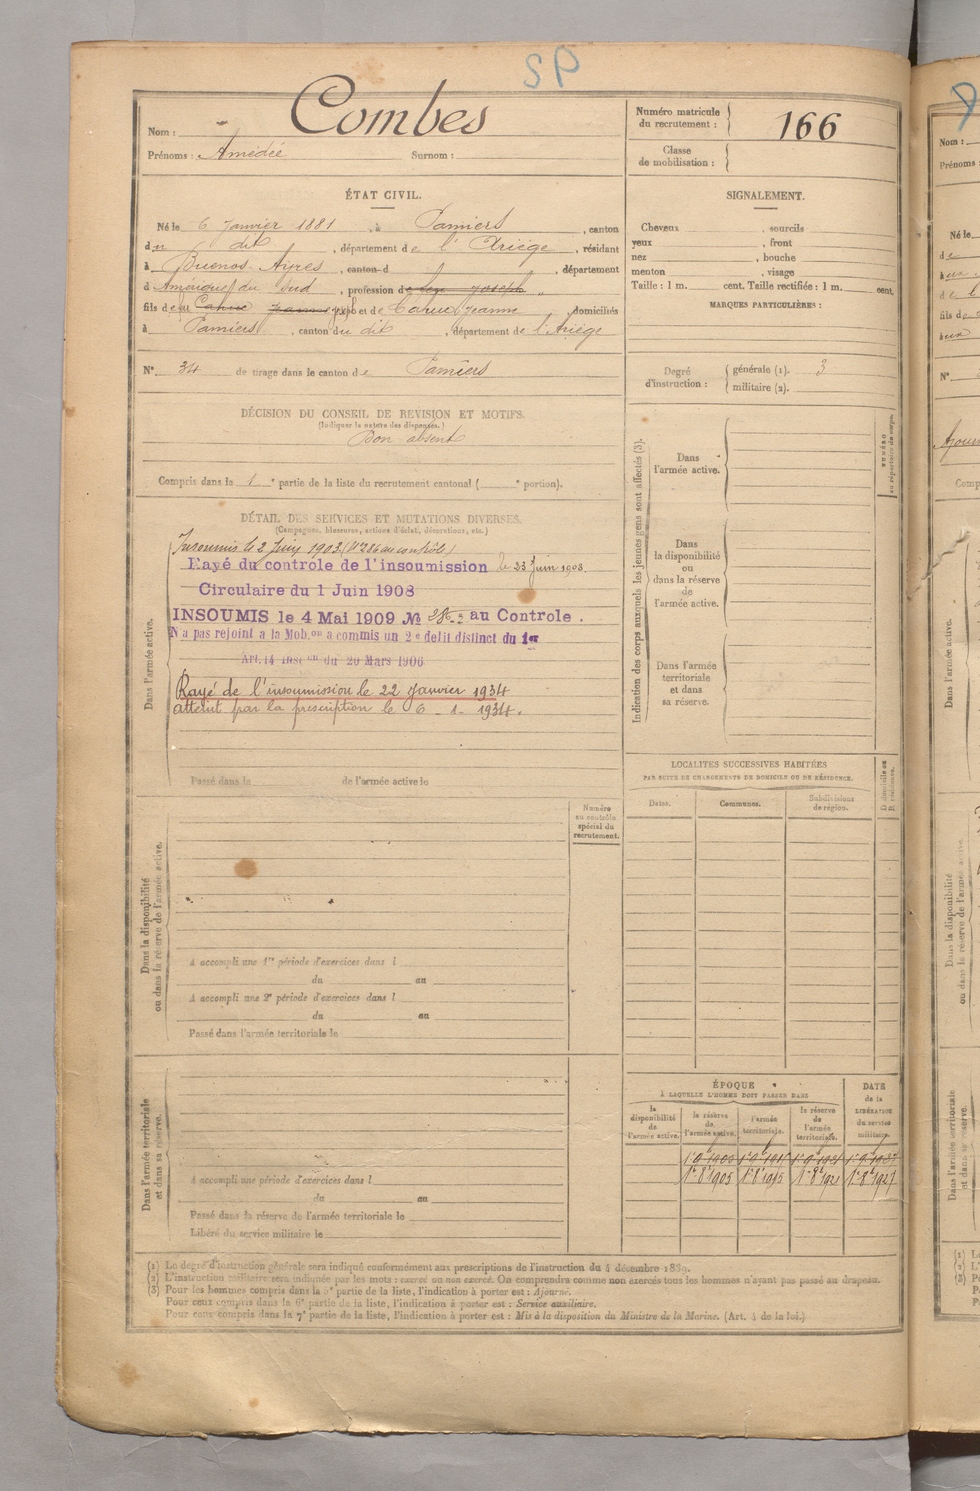 SP
Combes
Nom :
Prénoms : Amédée Surnom :
Numéro matricule du recrutement : 166
Classe de mobilisation :
ÉTAT CIVIL.
Né le 6 Janvier 1881, à Pamiers, canton
du dit, département de l'Ariège, résidant
à Buenos-Ayres, canton d , département
d Amérique du Sud, profession d
fils de et de Jeanne, domiciliés
à Pamiers, canton du dit, département de l'Ariège
N° 34 de tirage dans le canton de Pamiers
DÉCISION DU CONSEIL DE REVISION ET MOTIFS.
(Indiquer la nature des dispenses.)
Bon absent
Compris dans la 1 e partie de la liste du recrutement cantonal ( e portion).
DÉTAIL DES SERVICES ET MUTATIONS DIVERSES.
(Campagnes, blessures, actions d'éclat, décorations, etc.)
Insoumis le 2 Juin 1903 (N° 286 au contrôle)
Rayé du controle de l'insoumission le 23 Juin 1908
Circulaire du 1 Juin 1908
INSOUMIS le 4 Mai 1909 № au Controle.
N'a pas rejoint a la Mob.on a commis un 2e delit distinct du 1er
Art. 14 Inst on du 20 Mars 1906
Rayé de l'insoumission le 22 Janvier 1934
atteint par la prescription le 6-1-1934.
Passé dans la de l'armée active le
Dans l'armée active.
Numéro au contrôle spécial du recrutement.
Dans la disponibilité
ou dans la réserve de l'armée active.
A accompli une 1re période d'exercices dans l
du au
A accompli une 2e période d'exercices dans l
du au
Passé dans l'armée territoriale le
Dans l'armée territoriale
et dans sa réserve.
A accompli une période d'exercices dans l
du au
Passé dans la réserve de l'armée territoriale le
Libéré du service militaire le
SIGNALEMENT.
Cheveux , sourcils
yeux , front
nez , bouche
menton , visage
Taille : 1 m. cent. Taille rectifiée : 1 m. cent.
MARQUES PARTICULIÈRES :
Degré d'instruction : générale (1). 3
militaire (2).
Indication des corps auxquels les jeunes gens sont affectés (3).
NUMÉRO au répertoire du corps.
Dans
l'armée active.
Dans
la disponibilité
ou
dans la réserve
de
l'armée active.
Dans l'armée
territoriale
et dans
sa réserve.
LOCALITÉS SUCCESSIVES HABITÉES
PAR SUITE DE CHANGEMENTS DE DOMICILE OU DE RÉSIDENCE.
Dates. Communes. Subdivisions de région.
D. domicile ou R. résidence.
ÉPOQUE
À LAQUELLE L'HOMME DOIT PASSER DANS
DATE de la LIBÉRATION du service militaire.
la disponibilité de l'armée active. la réserve de l'armée active. l'armée territoriale. la réserve de l'armée territoriale.
(1) Le degré d'instruction générale sera indiqué conformément aux prescriptions de l'instruction du 4 décembre 1889.
(2) L'instruction militaire sera indiquée par les mots : exercé ou non exercé. On comprendra comme non exercés tous les hommes n'ayant pas passé au drapeau.
(3) Pour les hommes compris dans la 5e partie de la liste, l'indication à porter est : Ajourné.
Pour ceux compris dans la 6e partie de la liste, l'indication à porter est : Service auxiliaire.
Pour ceux compris dans la 7e partie de la liste, l'indication à porter est : Mis à la disposition du Ministre de la Marine. (Art. 4 de la loi.)